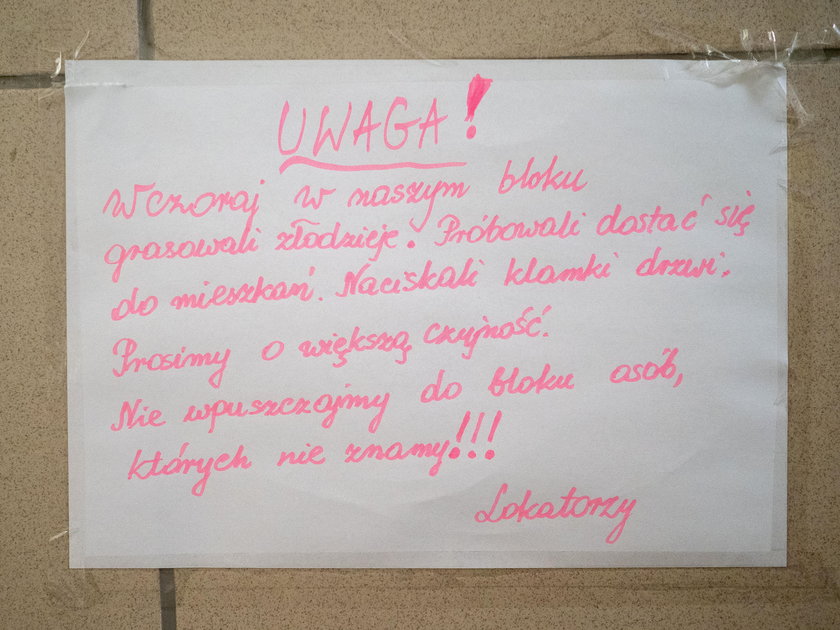 UWAGA!
Wczoraj w naszym bloku
grasowali złodzieje. Próbowali dostać się
do mieszkań. Naciskali klamki drzwi.
Prosimy o większą czujność.
Nie wpuszczajmy do bloku osób,
których nie znamy!!!
Lokatorzy